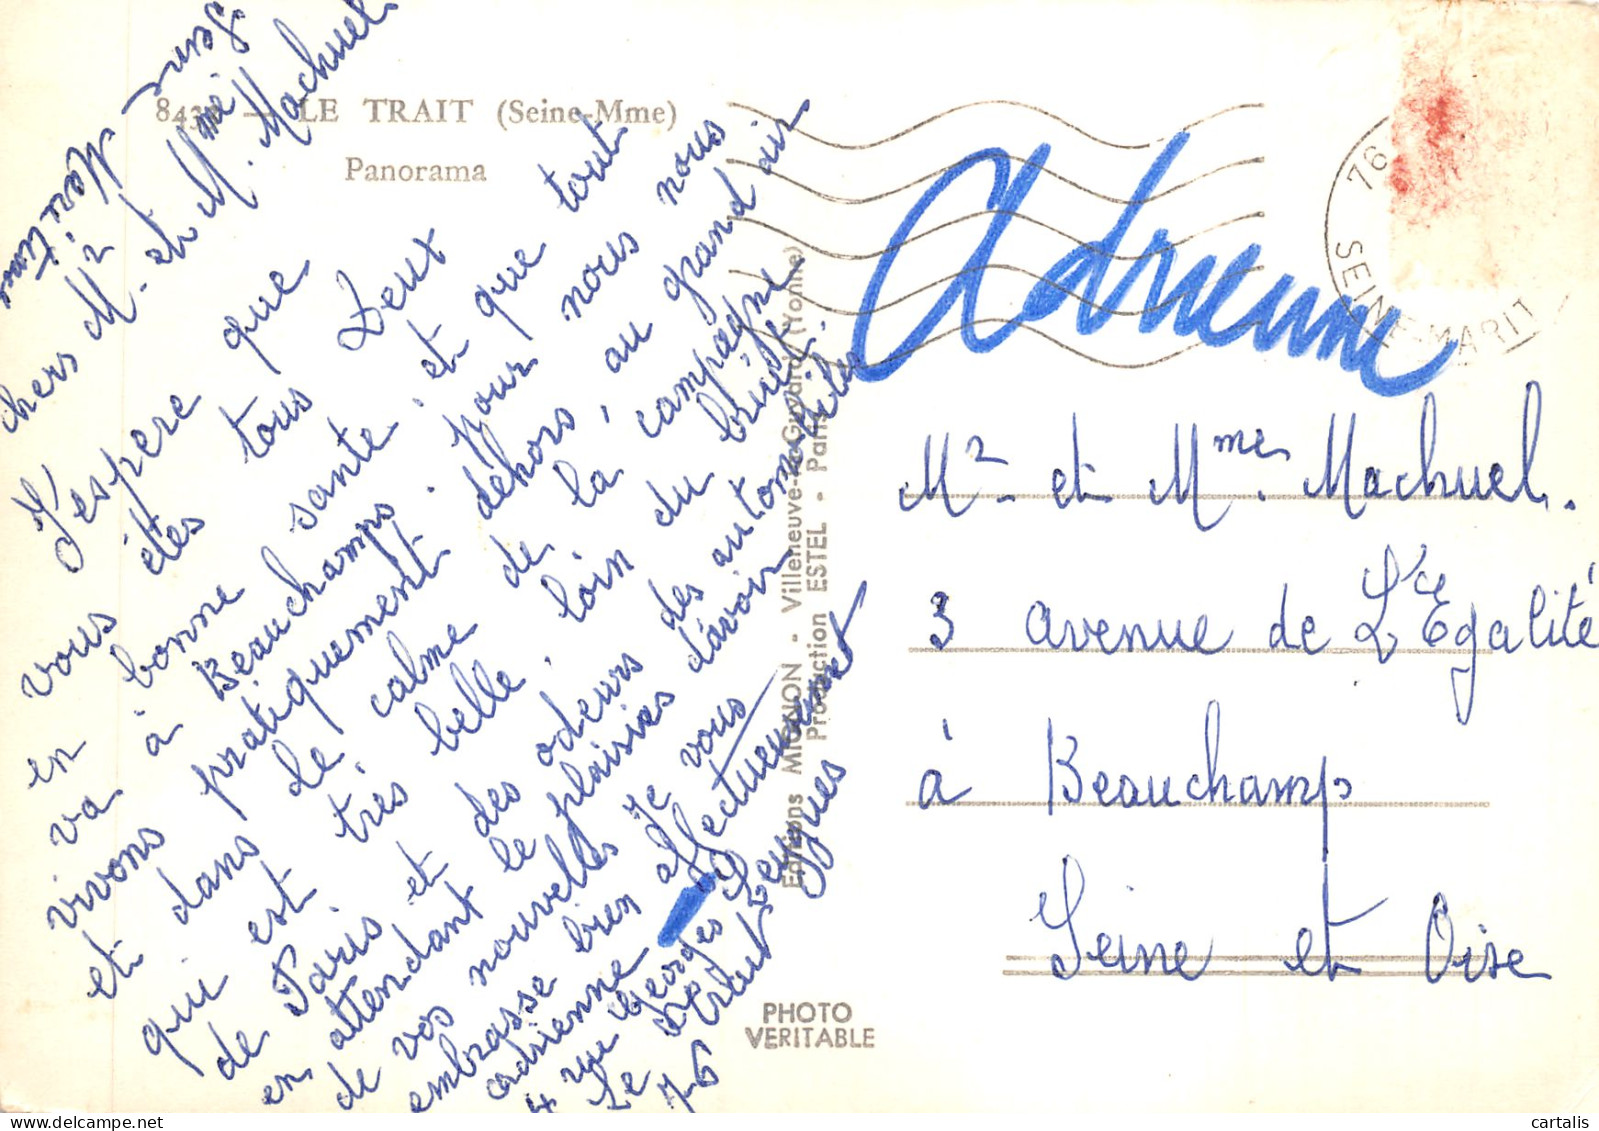 8430 — LE TRAIT (Seine-Mme)
Panorama
chers Mr. et Mme. Machuel
J'espère que
vous êtes tous Deux
en bonne santé. et que tout
va à Beauchamps. pour nous nous
vivons pratiquement dehors, au grand air
et dans le calme de la campagne
qui est très belle, loin du bruit
de Paris et des odeurs des automobiles.
en attendant le plaisir d'avoir
de vos nouvelles Je vous
embrasse bien affectueusement
adrienne
4 rue Georges Leygues
Le Trait
76
Seine Maritime
Editions MIGNON - Villeneuve-la-Guyard (Yonne)
Production ESTEL - Paris
PHOTO
VERITABLE
Adrienne
76
SEINE-MARIT
Mr. et Mme. Machuel.
3 avenue de L'Egalité
à Beauchamp
Seine et Oise
cartalis